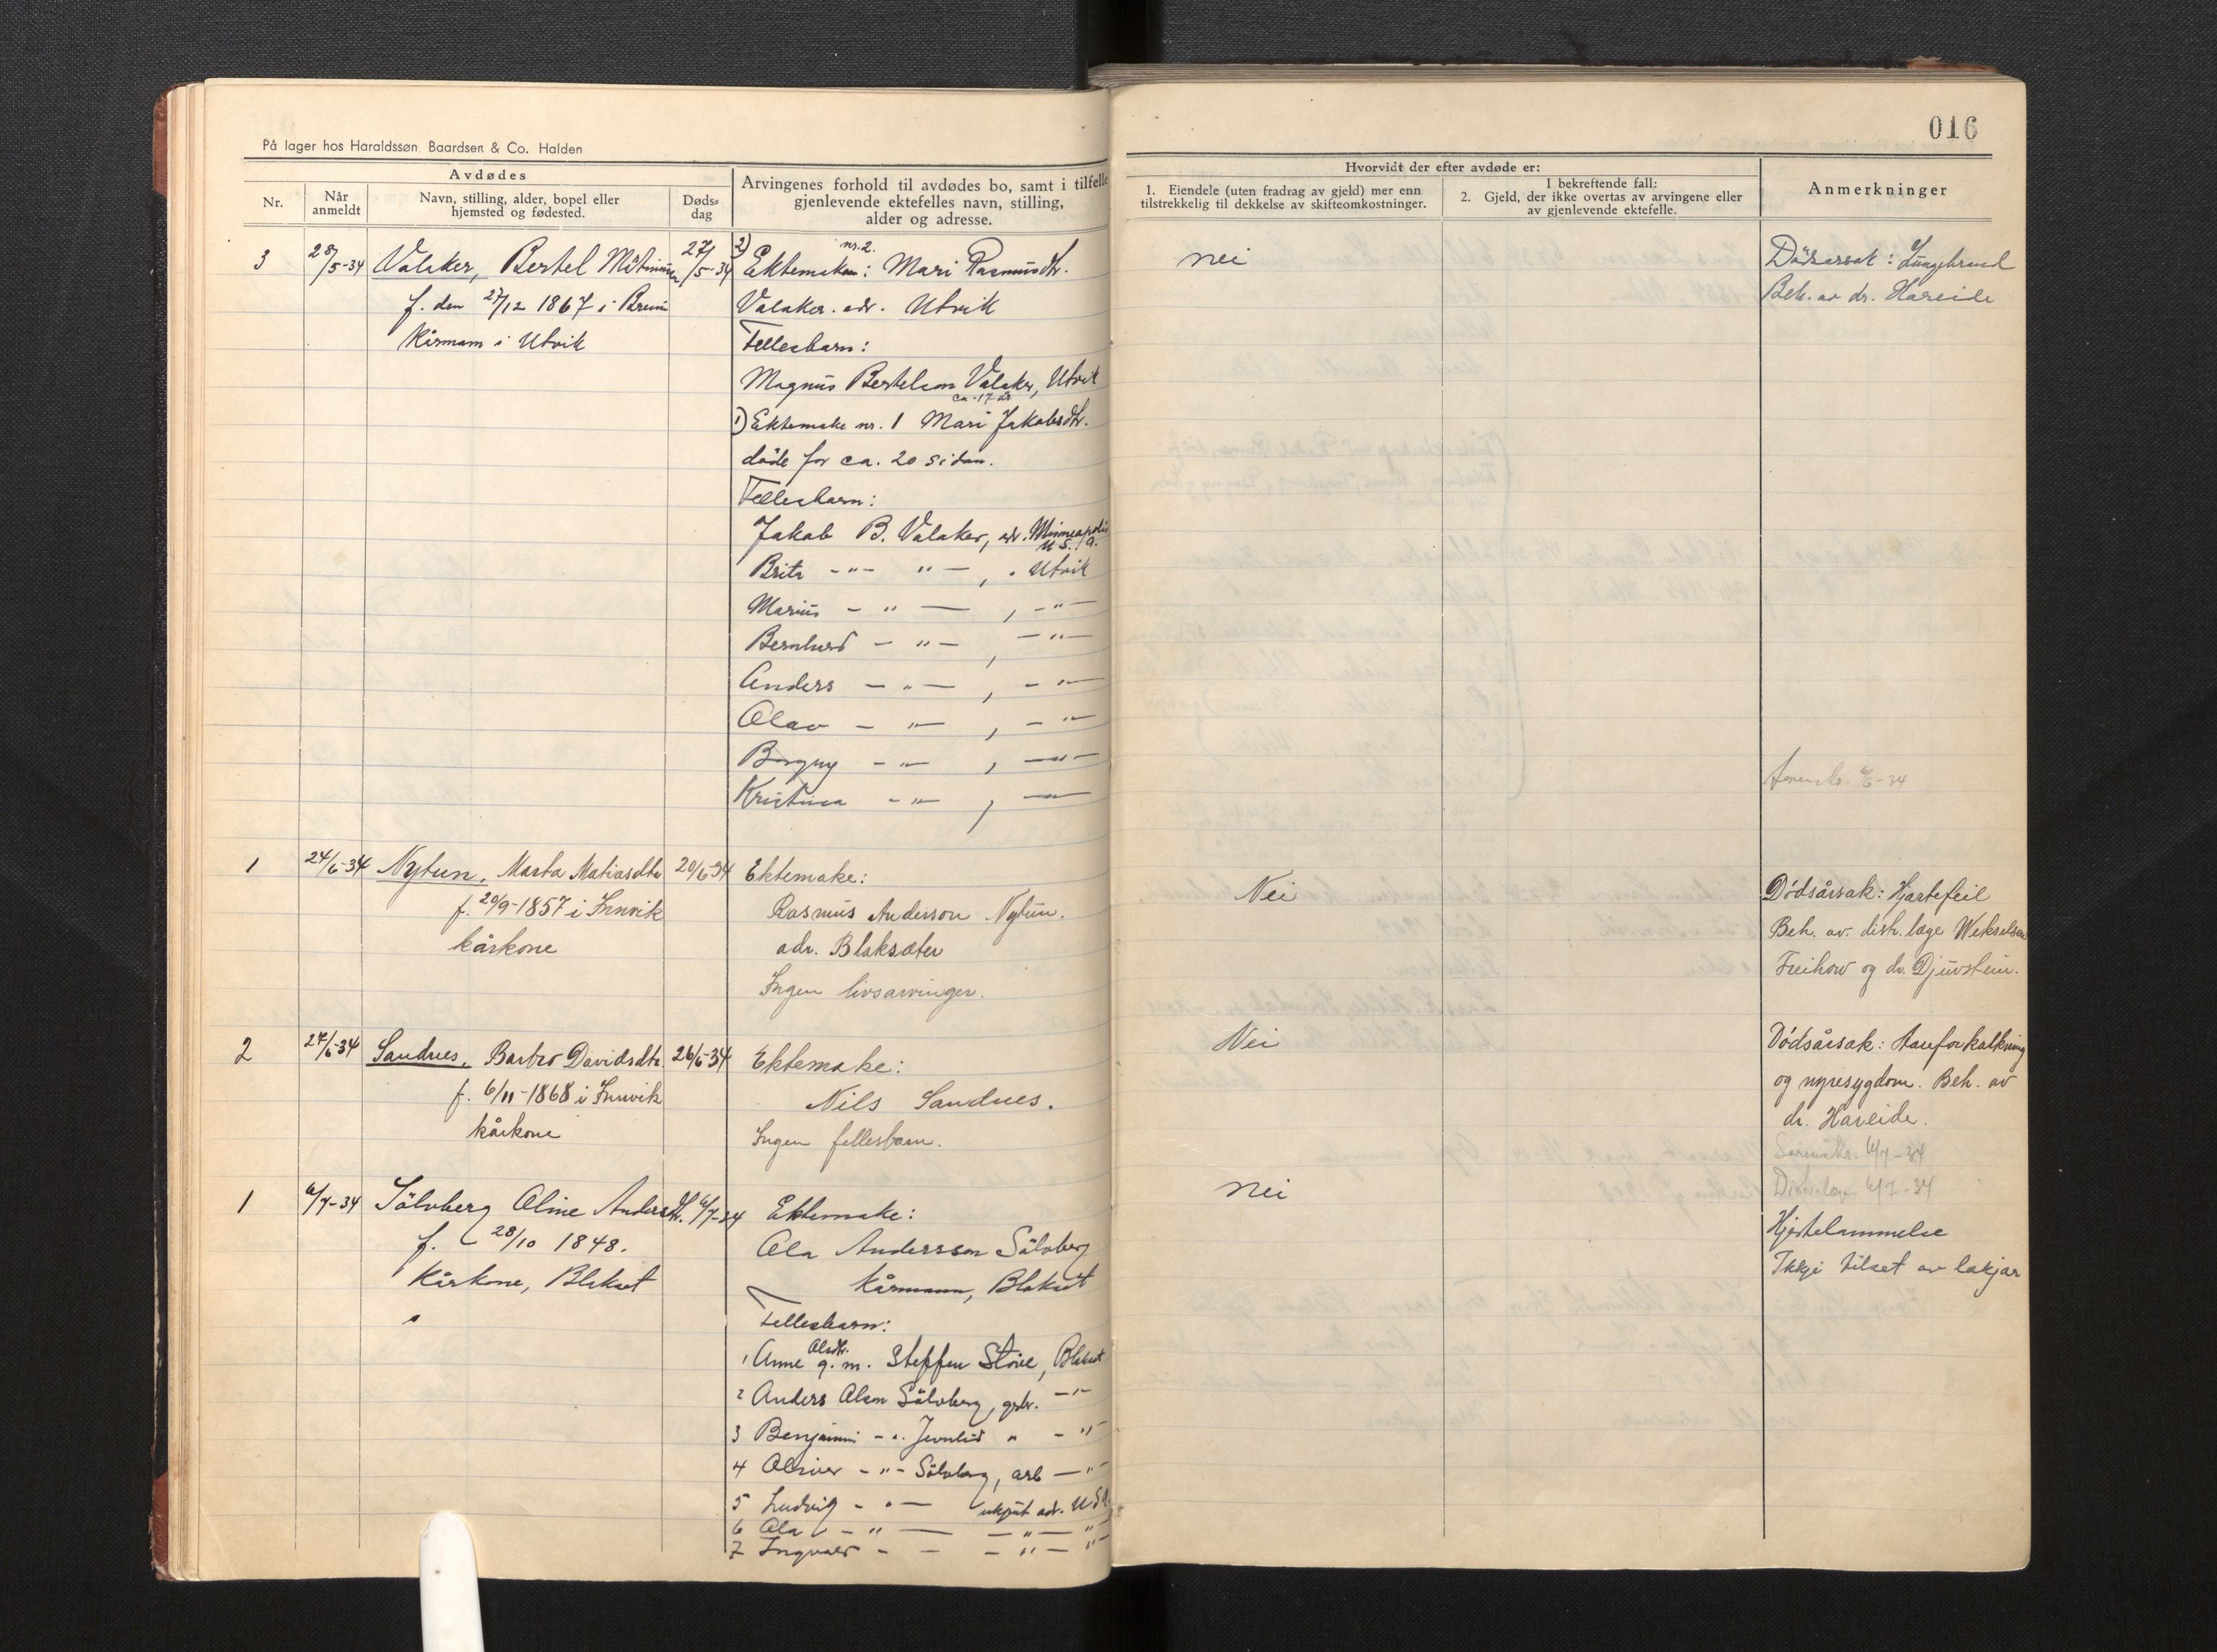 På lager hos Haraldssøn Baardsen & Co. Halden
016
Avdødes
Nr.
Når anmeldt
Navn, stilling, alder, bopel eller hjemsted og fødested.
Døds-dag
Arvingenes forhold til avdødes bo, samt i tilfelle
gjenlevende ektefelles navn, stilling,
alder og adresse.
Hvorvidt der efter avdøde er:
1. Eiendele (uten fradrag av gjeld) mer enn
tilstrekkelig til dekkelse av skifteomkostninger.
I bekreftende fall:
2. Gjeld, der ikke overtas av arvingene eller
av gjenlevende ektefelle.
Anmerkninger
3 28/5-34 Valaker, Bertel 27/5-34
f. den 27/12 1867 i
Kårmann i Utvik
2) Ektemake nr. 2. : Mari Rasmusdtr.
Valaker. adr. Utvik
Fellesbarn:
Magnus Bertelson Valaker, Utvik
ca. 17 år
1) Ektemake nr. 1 Mari Jakobsdtr.
døde for ca. 20 sidan.
Fellesbarn:
Jakob B. Valaker, adr. Minneapolis
U.S.A.
Brita -"- "- , " Utvik
Marius - " - , -"-
Bernhard - " - , -"-
Anders - " - , -"-
Olav - " - , -"-
Borgny - " - , -"-
Kristina - " - , -"-
nei
Dödsårsak: Lungebrand
Beh. av dr. Hareide
6/6-34
1 24/6-34 Nytun, Marta Matiasdtr 20/6-34
f. 20/9-1857 i Innvik
kårkone
Ektemake:
Rasmus Anderson Nytun.
adr. Blaksæter
Ingen livsarvinger.
Nei
Dødsårsak: Hjartefeil
Beh. av. distr. læge Wekselsen
og dr. Djuvstein.
2 27/6-34 Sandnes, Barbro Davidsdtr. 26/6-34
f. 6/11-1868 i Innvik
kårkone
Ektemake:
Nils Sandnes.
Ingen fellesbarn.
Nei
Dødsårsak: Aareforkalkning
og nyresygdom. Beh. av
dr. Hareide.
Sorenskr. 6/7-34
Distr.læg 6/7-34
1 6/7-34 Sölvberg Oline Andersdtr. 6/7-34
f. 28/10 1848.
Kårkone, Blakset
Ektemake:
Ola Andersson Sölvberg
kårmann, Blakset
Fellesbarn:
1 Anne Olsdtr. g. m. Steffen Støve, Blakset
2 Anders Olson Sölvberg, gbr. -"-
3 Benjamin -"- " -"-
4 Oliver -"- Sölvberg, arb -"-
5 Ludvig -"- ukjent adr. USA
6 Ola -"- -"- "
7 Ingvald - - -"- "
nei
Hjertelammelse
Ikkje tilset av lækjar